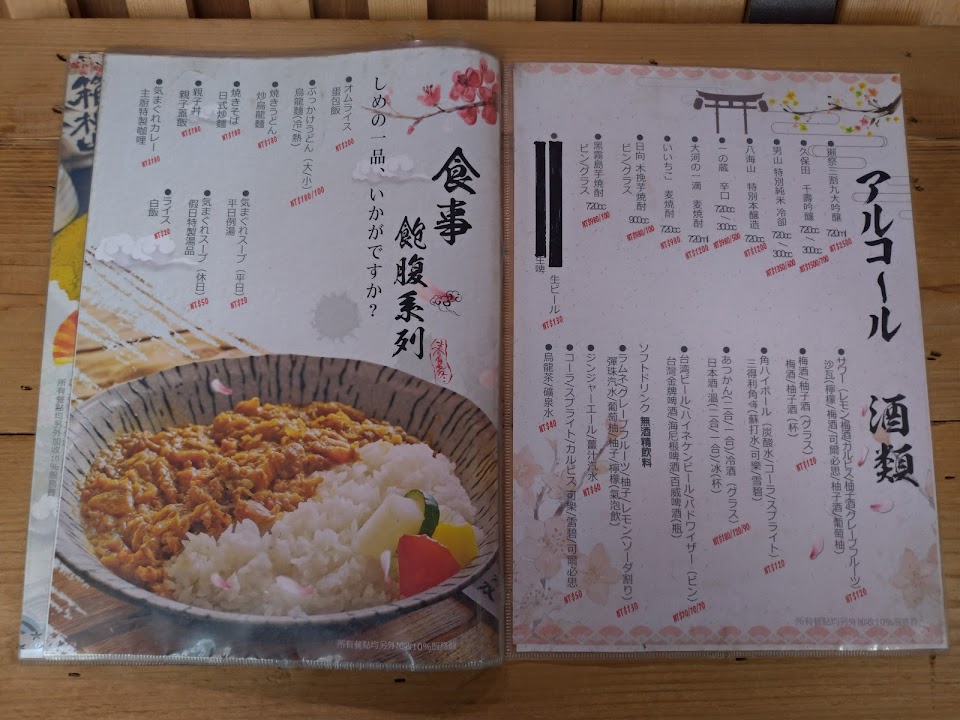 食事
飽腹系列
しめの一品、いかがですか？
●オムライス
蛋包飯
NT$200
●ぶっかけうどん（大/小）
烏龍麵(冷/熱)
NT$180/100
●焼きうどん
炒烏龍麵
NT$180
●焼きそば
日式炒麵
NT$180
●親子丼
親子蓋飯
NT$180
●気まぐれカレー
主廚特製咖哩
●気まぐれスープ（平日）
平日例湯
NT$20
●気まぐれスープ（休日）
假日特製湯品
NT$50
●ライス
白飯
NT$20
所有餐點均另外加收10%服務費
アルコール 酒類
●獺祭三割九大吟釀 720cc
NT$2500
●久保田 千壽吟釀 720cc / 300cc
NT$1500/700
●男山 特別純米 冷卻 720cc / 300cc
NT$1350/600
●八海山 特別本釀造 720cc
NT$1200
●一の蔵 辛口 720cc / 300cc
NT$980/500
●大河の一滴 麦焼酎 720ml
NT$1200
●いいちこ 麦焼酎 720cc
NT$980
●日向 木挽芋焼酎 900cc
ビン/グラス
NT$980/100
●黑霧島芋焼酎 720cc
ビン/グラス
NT$980/100
生ビール
生啤
NT$130
●サワー（レモン/梅酒/カルピス/柚子酒/グレープフルーツ）
沙瓦(檸檬/梅酒/可爾必思/柚子酒/葡萄柚)
NT$120
●梅酒/柚子酒（グラス）
梅酒/柚子酒(杯)
NT$120
●角ハイボール（炭酸水/コーラ/スプライト）
三得利角嗨(蘇打水/可樂/雪碧)
NT$120
●あつかん(二合/一合)/冷酒（グラス）
日本酒 溫(二合/一合)/冰(杯)
NT$180/120/90
●台湾ビール/ハイネケンビール/バドワイザー（ビン）
台灣金牌啤酒/海尼根啤酒/百威啤酒(瓶)
ソフトドリンク 無酒精飲料
●ラムネ/グレープフルーツ/柚子/レモン(ソーダ割り)
彈珠汽水/葡萄柚/柚子/檸檬(氣泡飲)
NT$130
●ジンジャーエール/薑汁汽水
NT$60
●コーラ/スプライト/カルピス 可樂/雪碧/可爾必思
NT$50
●烏龍茶/礦泉水
NT$40
所有餐點均另外加收10%服務費